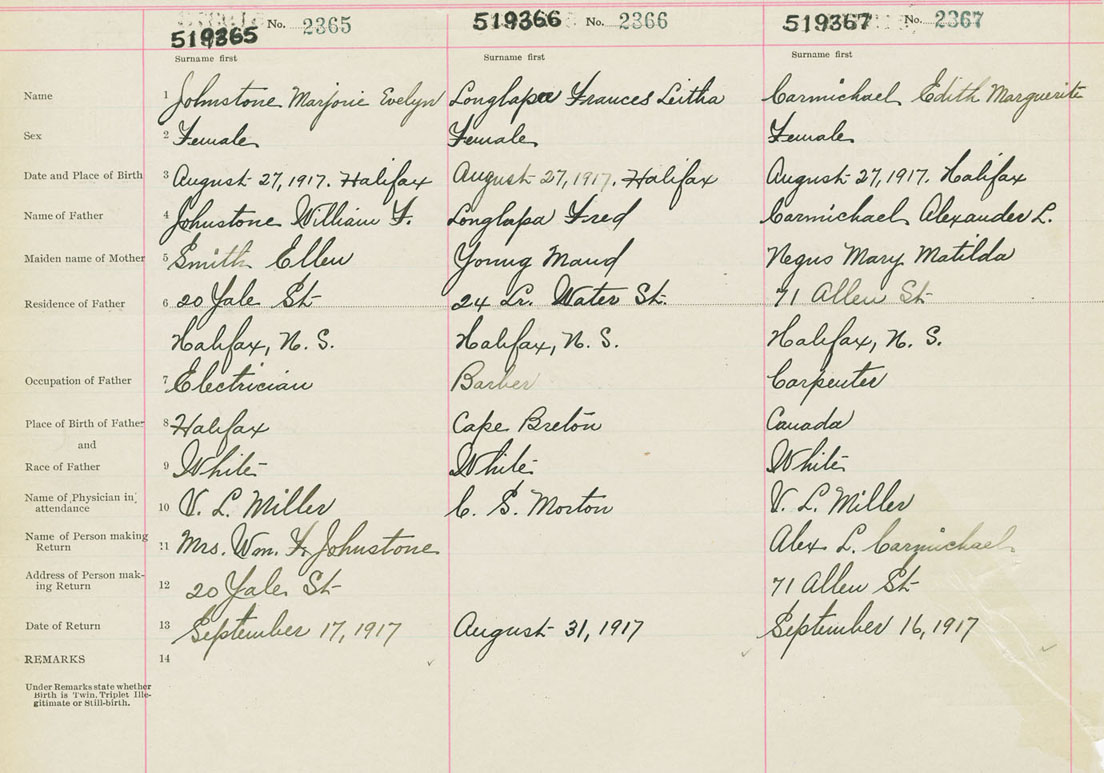 519365 No. 2365 519366 No. 2366 519367 No. 2367
Surname first Surname first Surname first
Name 1 Johnstone Marjorie Evelyn Longlapa Frances Leitha Carmichael Edith Marguerite
Sex 2 Female Female Female
Date and Place of Birth 3 August 27, 1917. Halifax August 27, 1917. Halifax August 27, 1917. Halifax
Name of Father 4 Johnstone William F. Longlapa Fred Carmichael Alexander L.
Maiden name of Mother 5 Smith Ellen Young Maud Negus Mary Matilda
Residence of Father 6 20 Yale St 24 Lr. Water St. 71 Allen St
Halifax, N. S. Halifax, N. S. Halifax, N. S.
Occupation of Father 7 Electrician Barber Carpenter
Place of Birth of Father 8 Halifax Cape Breton Canada
and
Race of Father 9 White White White
Name of Physician in
attendance 10 V. L. Miller C. S. Morton V. L. Miller
Name of Person making
Return 11 Mrs. Wm. F. Johnstone Alex L. Carmichael
Address of Person mak-
ing Return 12 20 Yale St 71 Allen St
Date of Return 13 September 17, 1917 August 31, 1917 September 16, 1917
REMARKS 14
Under Remarks state whether
Birth is Twin, Triplet Ille-
gitimate or Still-birth.